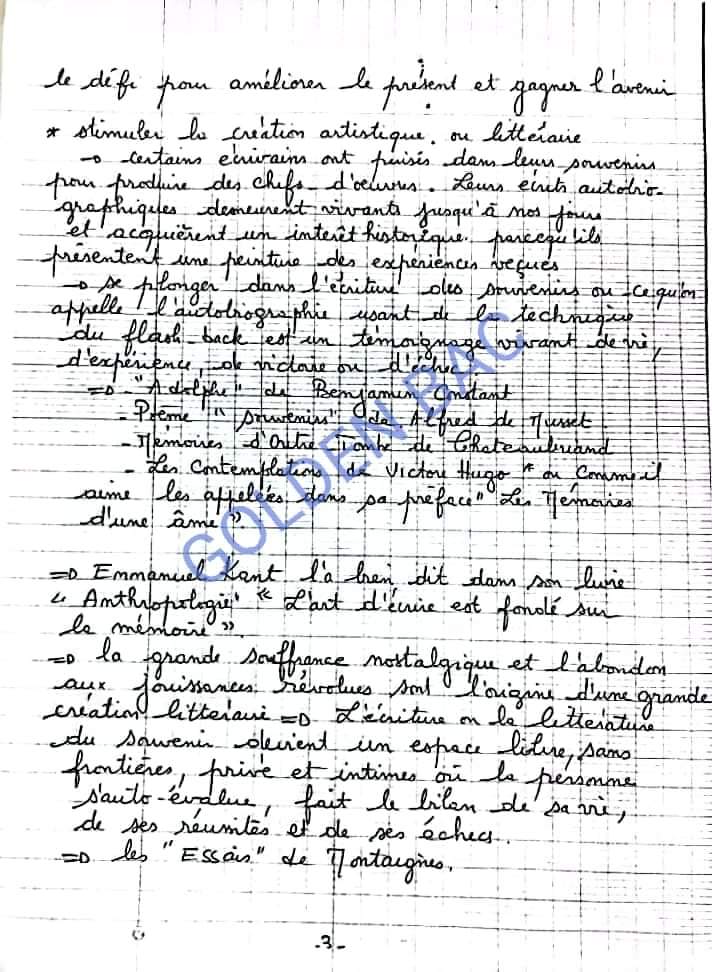 le défi pour améliorer le présent et gagner l'avenir
* stimuler la création artistique. ou littéraire
→ certains écrivains ont puisés dans leurs souvenirs
pour produire des chefs-d'oeuvres. Leurs écrits autobio-
graphiques demeurent vivants jusqu'à nos jours
et acquièrent un intérêt historique. parcequ'ils
présentent une peinture des expériences veçues
→ se plonger dans l'écriture des souvenirs ou ce qu'on
appelle l'autobiographie usant de la technique
du flash-back est un témoignage vivant de vie,
d'expérience, de victoire ou d'échec
=> - "Adolphe" de Benjamin Constant
- Poème "souvenirs" de Alfred de Musset
- Mémoires d'Outre Tombe de Chateaubriand
- Les Contemplations de Victor Hugo " ou Comme il
aime les appelées dans sa préface " Les Mémoires
d'une âme"
=> Emmanuel Kant l'a bien dit dans son livre
"Anthropologie" "L'art d'écrire est fondé sur
la mémoire".
=> la grande souffrance nostalgique et l'abondon
aux jouissances révolues sont l'origine d'une grande
création littéraire => L'écriture ou la littérature
du souvenir devient un espace libre, sans
frontières, privé et intimes où la personne
s'auto-évalue, fait le bilan de sa vie,
de ses réussites et de ses échecs.
=> les "Essais" de Montaignes.
-3-
GOLDEN BAC